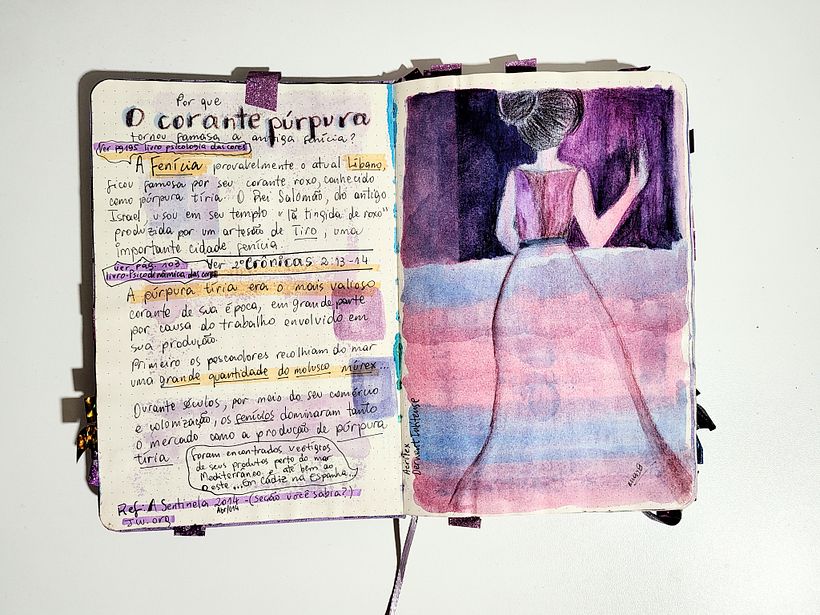 Por que
O corante púrpura
tornou famosa a antiga fenícia?
Ver pg 195 livro psicologia das cores
A Fenícia, provavelmente o atual Líbano,
ficou famosa por seu corante roxo, conhecido
como púrpura tíria. O Rei Salomão, do antigo
Israel, usou em seu templo "lã tingida de roxo"
produzida por um artesão de Tiro, uma
importante cidade fenícia.
Ver pag. 103
livro Psicodinâmica das cores
Ver 2º Crônicas 2:13-14
A púrpura tíria era o mais valioso
corante de sua época, em grande parte
por causa do trabalho envolvido em
sua produção.
Primeiro os pescadores recolhiam do mar
uma grande quantidade do molusco múrex...
Durante séculos, por meio do seu comércio
e colonização, os fenícios dominaram tanto
o mercado como a produção de púrpura
tíria
foram encontrados vestígios
de seus produtos perto do mar
Mediterrâneo e até bem ao
oeste... Em Cádiz na Espanha
Ref: A Sentinela 2014 - (seção você sabia?)
Abr/014
JW.org
Acrilex
Derwent Inktense